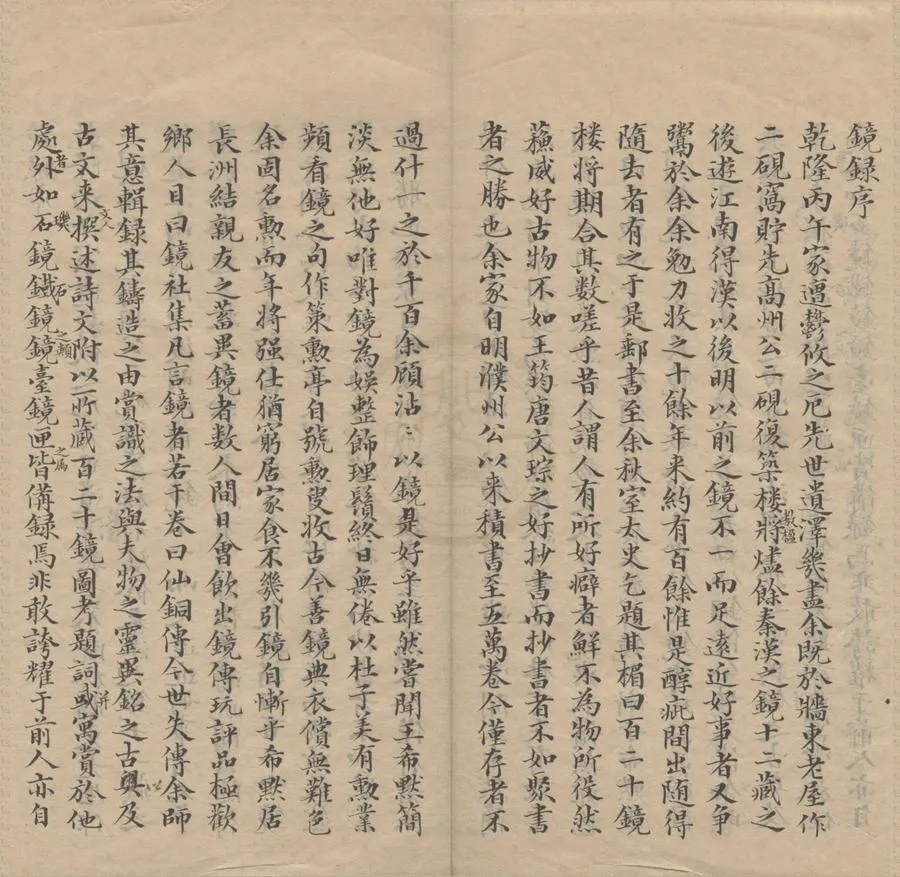 鏡録序
乾隆丙午家遭鬱攸之厄先世遺澤幾盡余既於牆東老屋作
二硯窩貯先高州公二硯復築楼將燼餘秦漢之鏡十二藏之
數樞
後遊江南得漢以後明以前之鏡不一而足遠近好事者又争
鬻於余余勉力收之十餘年来約有百餘惟是醇疵間出随得
隨去者有之于是郵書至余秋室太史乞題其楣曰百二十鏡
楼将期合其數嗟乎昔人謂人有所好癖者鮮不為物所役然
蘓威好古物不如王筠唐文琮之好抄書而抄書者不如聚書
者之勝也余家自明濮州公以来積書至五萬卷今僅存者不
過什一之於千百余顧沾〻以鏡是好乎雖然嘗聞王希默簡
淡無他好唯對鏡為娱整飾理鬢終日無倦以杜子美有勲業
頻看鏡之句作策勲亭自號勲叟收古今善鏡典衣償無難色
余固名勲而年将强仕猶窮居家食不幾引鏡自慚乎希默居
長洲結親友之蓄異鏡者数人間日會飲出鏡傳玩評品極歡
鄉人目曰鏡社集凡言鏡者若干卷曰仙銅傳今世失傳余師
其意輯録其鑄造之由賞識之法與夫物之靈異銘之古奥及
以
古文来撰述詩文附以所藏百二十鏡圖考題詞或寓賞於他
文人
并
處外如石鏡鐵鏡鏡臺鏡匣皆備録焉非敢誇耀于前人亦自
者
璣
石
之類
之属